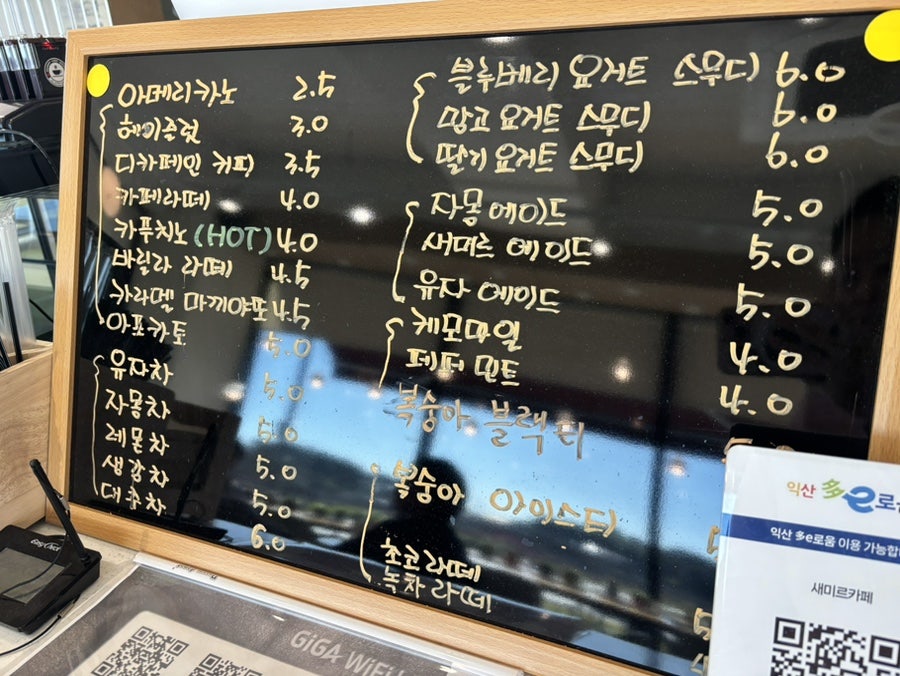 아메리카노 2.5
헤이즐넛 3.0
디카페인 커피 3.5
카페라떼 4.0
카푸치노 (HOT) 4.0
바릴라 라떼 4.5
카라멜 마끼야또 4.5
아포카토 5.0
유자차 5.0
자몽차 5.0
레몬차 5.0
생강차 5.0
대추차 6.0
블루베리 요거트 스무디 6.0
망고 요거트 스무디 6.0
딸기 요거트 스무디 6.0
자몽에이드 5.0
새미르 에이드 5.0
유자 에이드 5.0
케모마일 4.0
페퍼민트 4.0
복숭아, 블랙티
복숭아 아이스티
초코라떼
녹차라떼
익산 多e로움
익산 多e로움 이용 가능합
새미르카페
GiGA WiFi